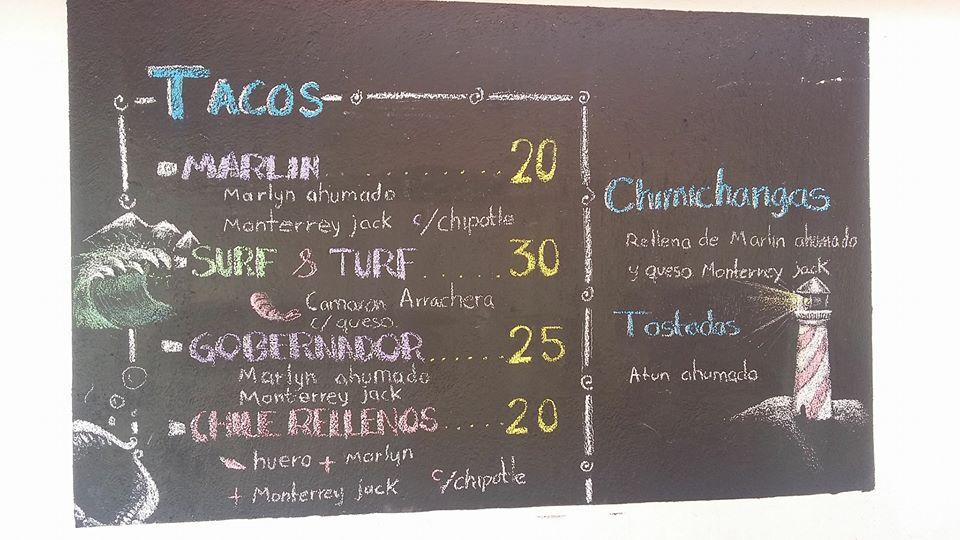 TACOS
MARLIN ........... 20
Marlyn ahumado
Monterrey jack c/chipotle
SURF & TURF ...... 30
Camaron Arrachera
c/queso
GOBERNADOR ...... 25
Marlyn ahumado
Monterrey jack
CHILE RELLENOS ..... 20
huero + Marlyn
+ Monterrey jack c/chipotle
Chimichangas
Rellena de Marlin ahumado
y queso Monterrey jack
Tostadas
Atun ahumado